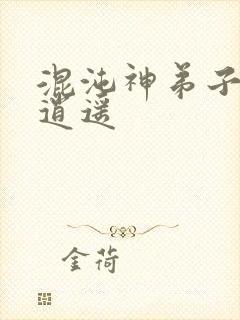 混沌神弟子
逍遥
金荷